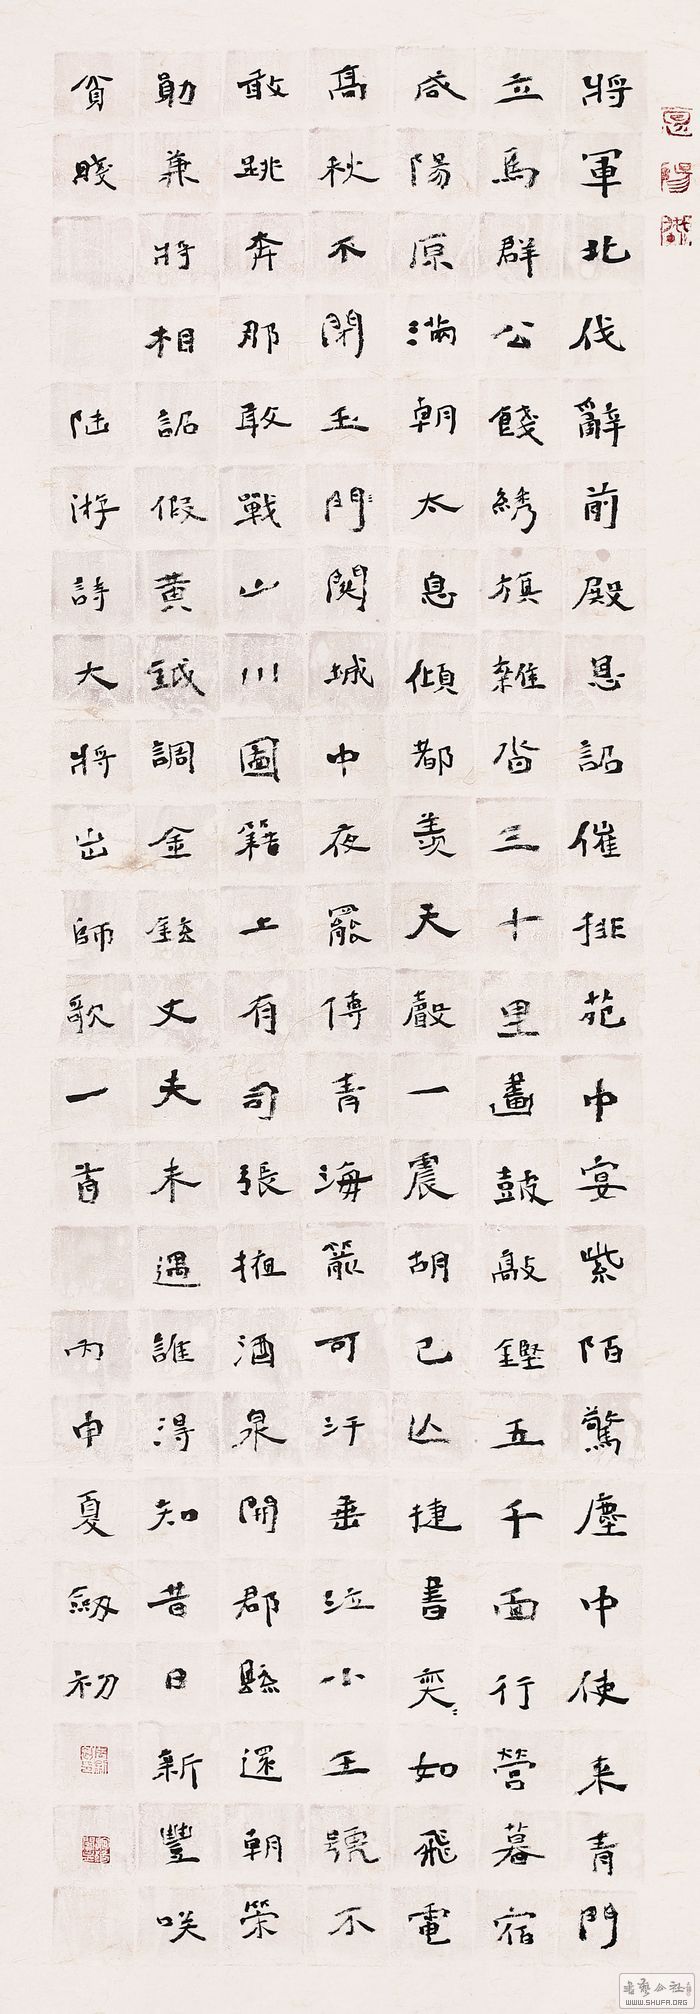 將軍北伐辭前殿恩詔催排苑中宴紫陌驚塵中使來青門
立馬群公餞綉旗雜沓三十里畫鼓敲鏗五千面行營暮宿
咸陽原滿朝太息傾都羨天聲一震胡已亾捷書奕〻如飛電
高秋不閉玉門關城中夜罷傳青海箭可汗垂泣小王號不
敢跳奔那敢戰山川圖籍上有司張掖酒泉開郡縣還朝榮
勛兼將相詔假黃鉞調金鉉丈夫未遇誰得知昔日新豐咲
貧賤 陸游詩大將出師歌一首 丙申夏劔初
书艺公社
WWW.SHUFA.ORG